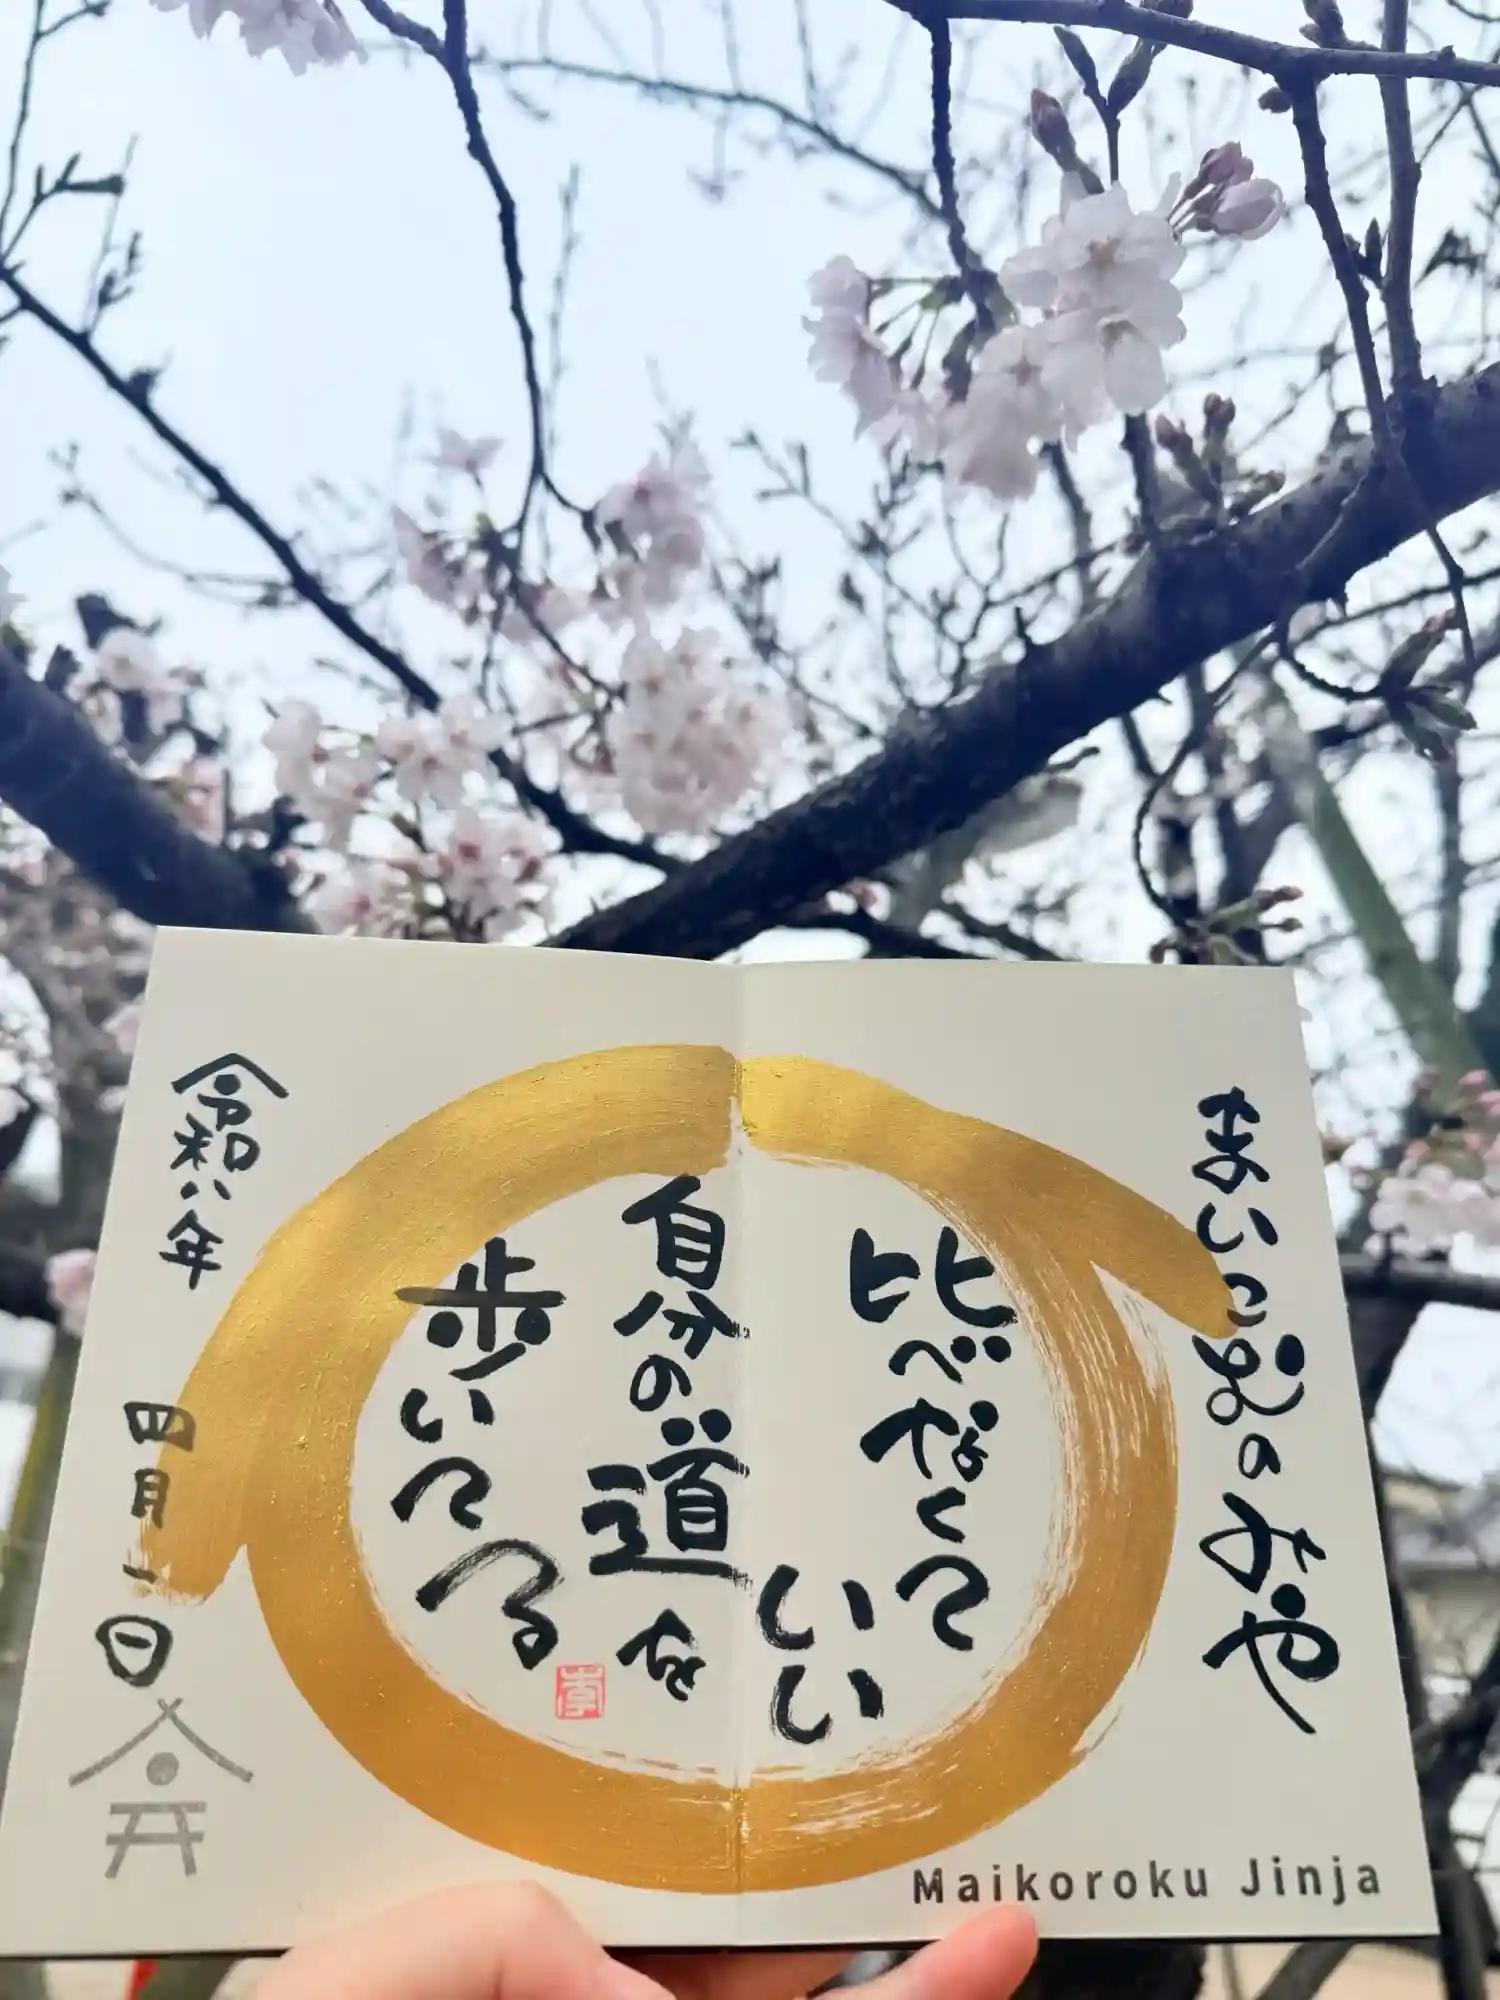 まいころくのおや
比べなくて
いい
自分の道を
歩いてる
令和八年
四月一日
Maikoroku Jinja